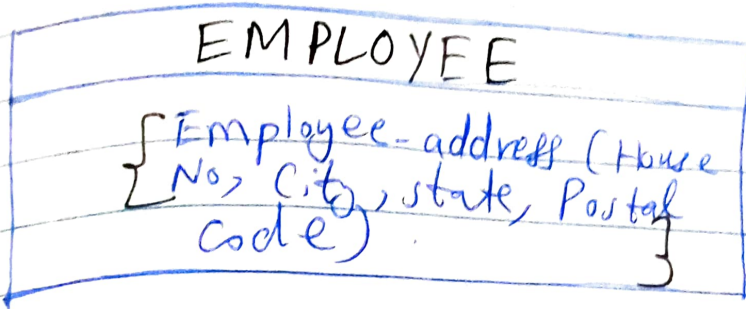 EMPLOYEE
{Employee-address (House
No, City, state, Postal
code)
}